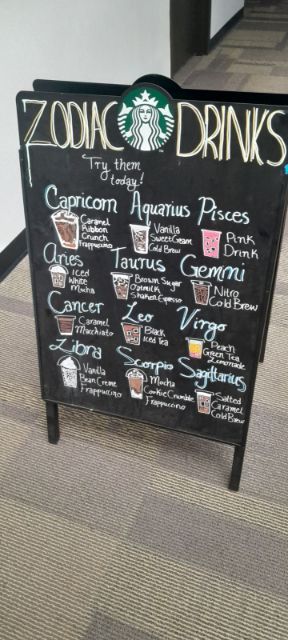 ZODIAC DRINKS
Try them
today!
Capricorn
Caramel
Ribbon
Crunch
Frappuccino
Aquarius
Vanilla
Sweet Cream
Cold Brew
Pisces
Pink
Drink
Aries
Iced
White
Mocha
Taurus
Brown Sugar
Oatmilk
Shaken Espresso
Gemini
Nitro
Cold Brew
Cancer
Caramel
Macchiato
Leo
Black
Iced Tea
Virgo
Peach
Green Tea
Lemonade
Libra
Vanilla
Bean Creme
Frappuccino
Scorpio
Mocha
Cookie Crumble
Frappuccino
Sagittarius
Salted
Caramel
Cold Brew